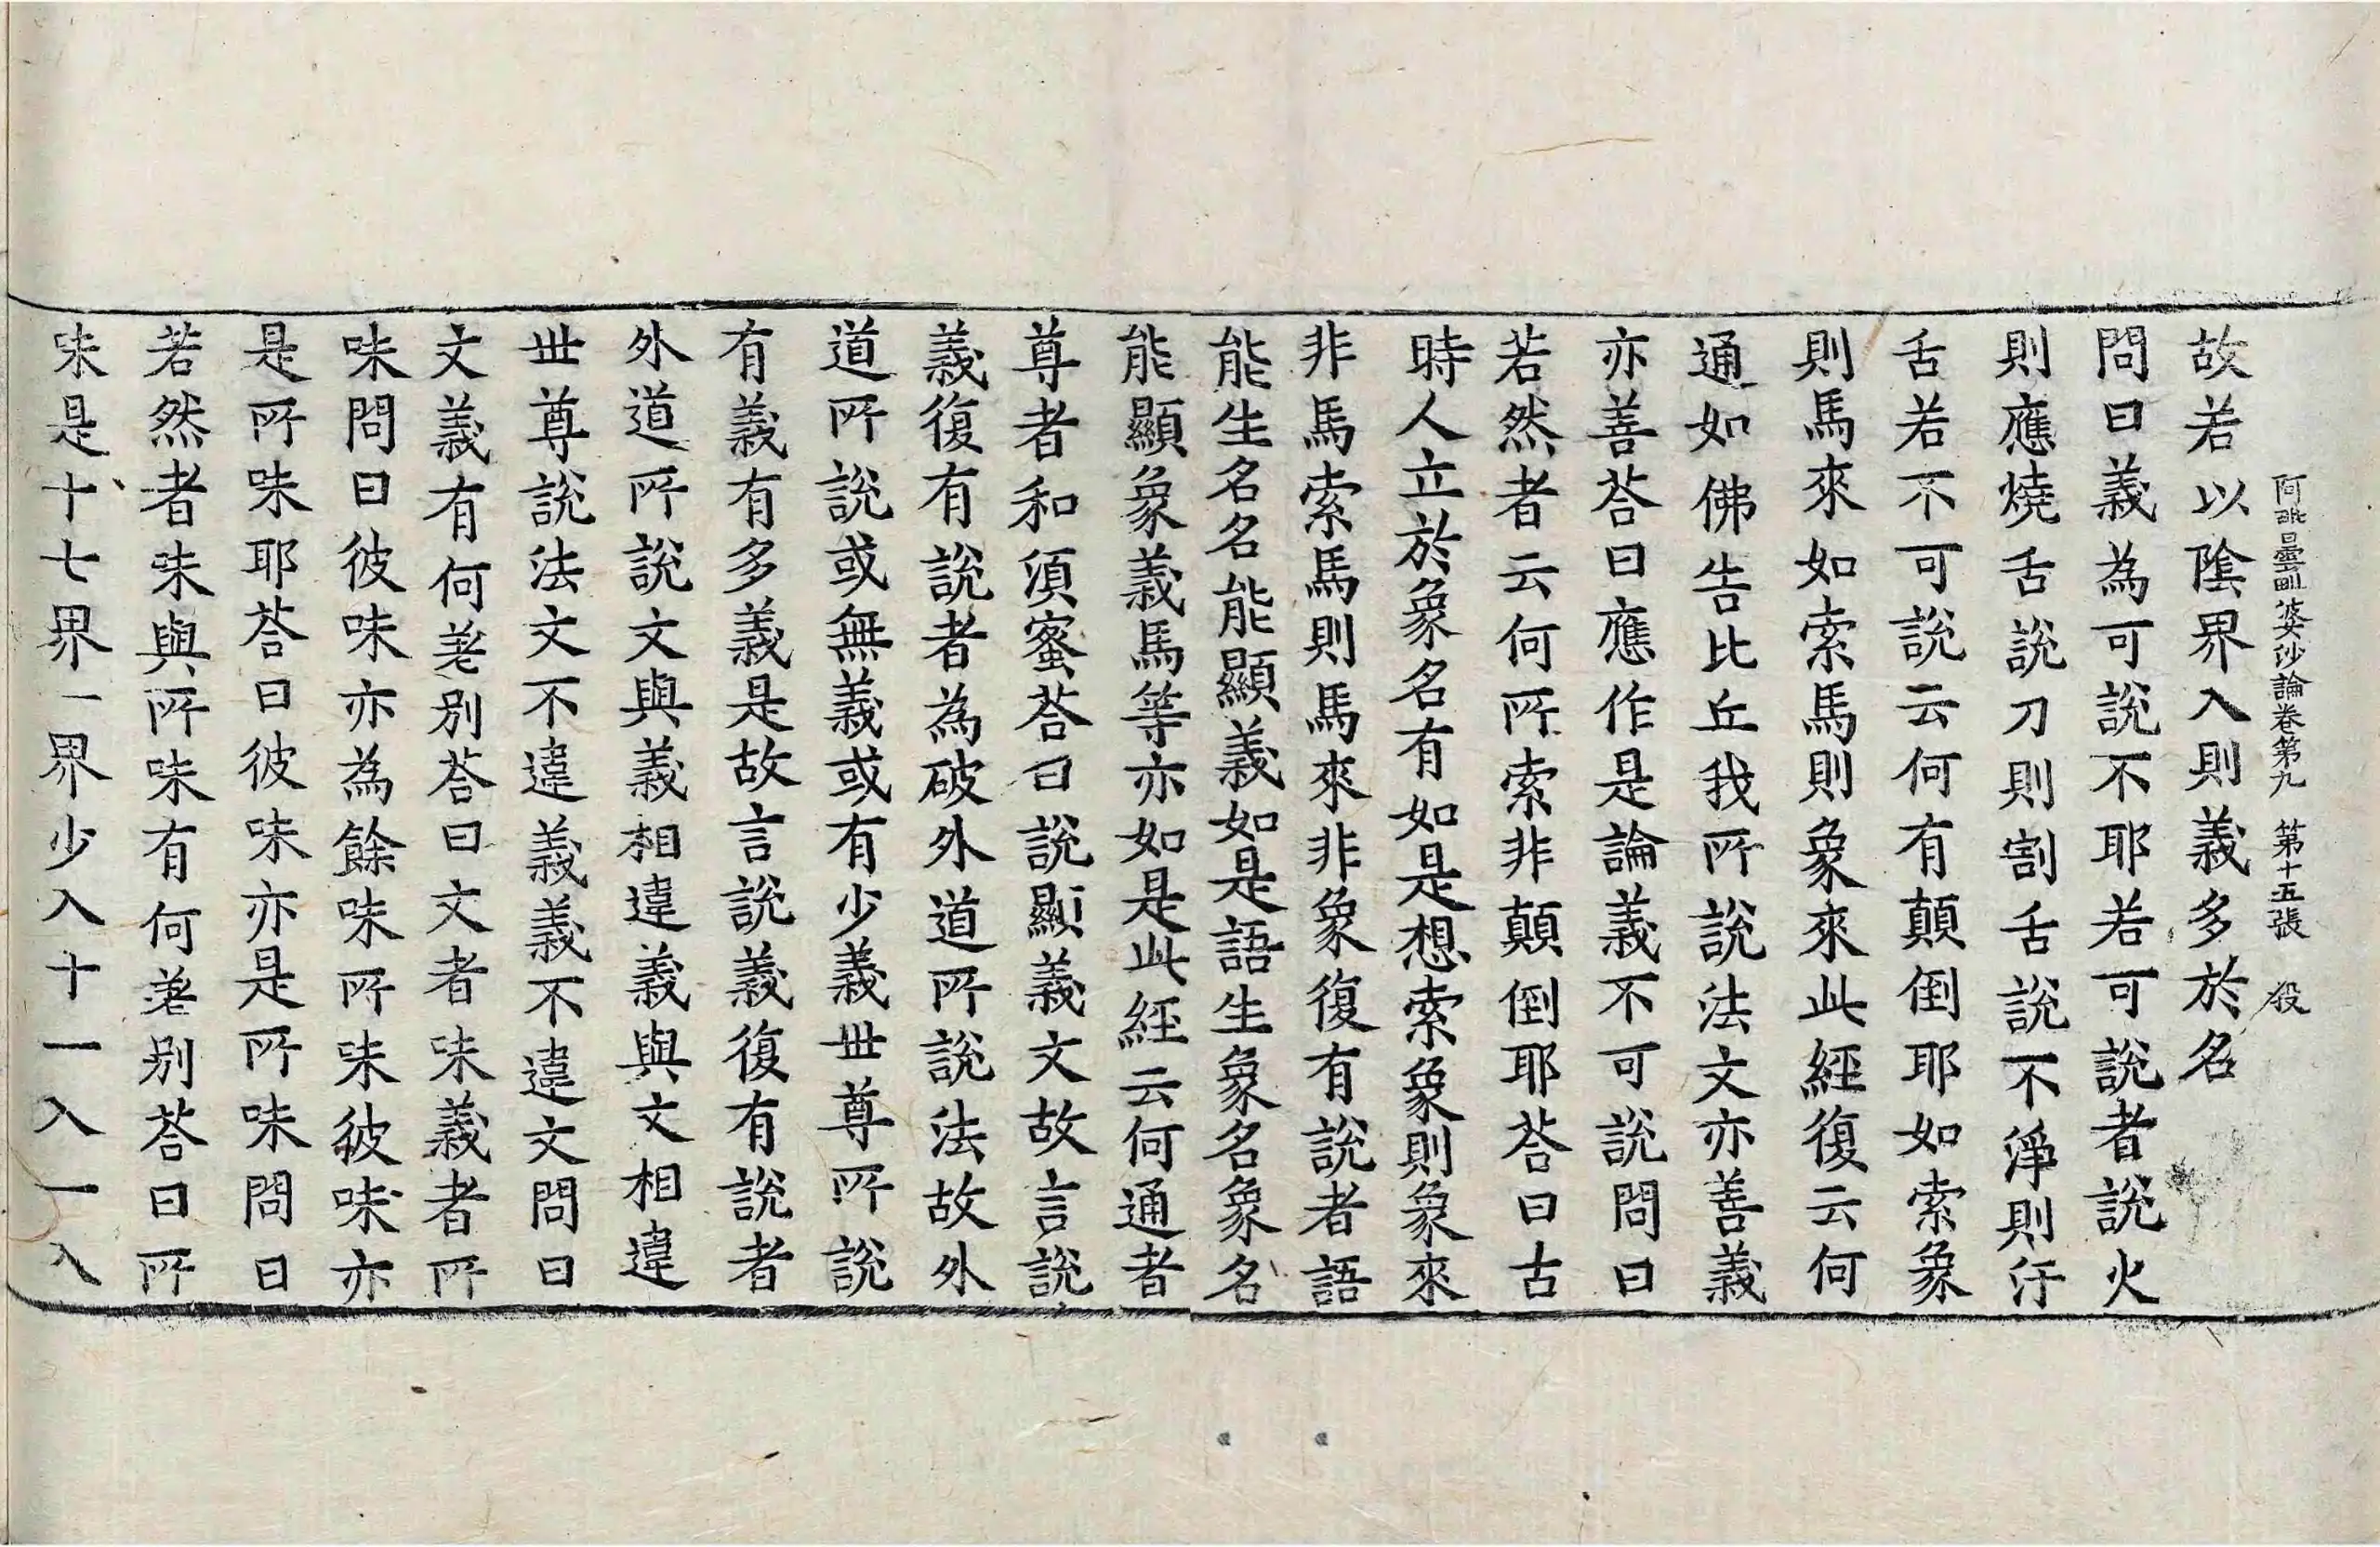 阿毗曇毗婆沙論卷第九　第十五張　殷
故若以陰界入則義多於名
問曰義為可說不耶若可說者說火
則應燒舌說刀則割舌說不淨則汙
舌若不可說云何有顛倒耶如索象
則馬來如索馬則象來此經復云何
通如佛告比丘我所說法文亦善義
亦善荅曰應作是論義不可說問曰
若然者云何所索非顛倒耶荅曰古
時人立於象名有如是想索象則象來
非馬索馬則馬來非象復有說者語
能生名名能顯義如是語生象名象名
能顯象義馬等亦如是此經云何通者
尊者和須蜜荅曰說顯義文故言說
義復有說者為破外道所說法故外
道所說或無義或有少義世尊所說
有義有多義是故言說義復有說者
外道所說文與義相違義與文相違
世尊說法文不違義義不違文問曰
文義有何差別荅曰文者味義者所
味問曰彼味亦為餘味所味彼味亦
是所味耶荅曰彼味亦是所味問曰
若然者味與所味有何差別荅曰所
味是十七界一界少入十一入一入